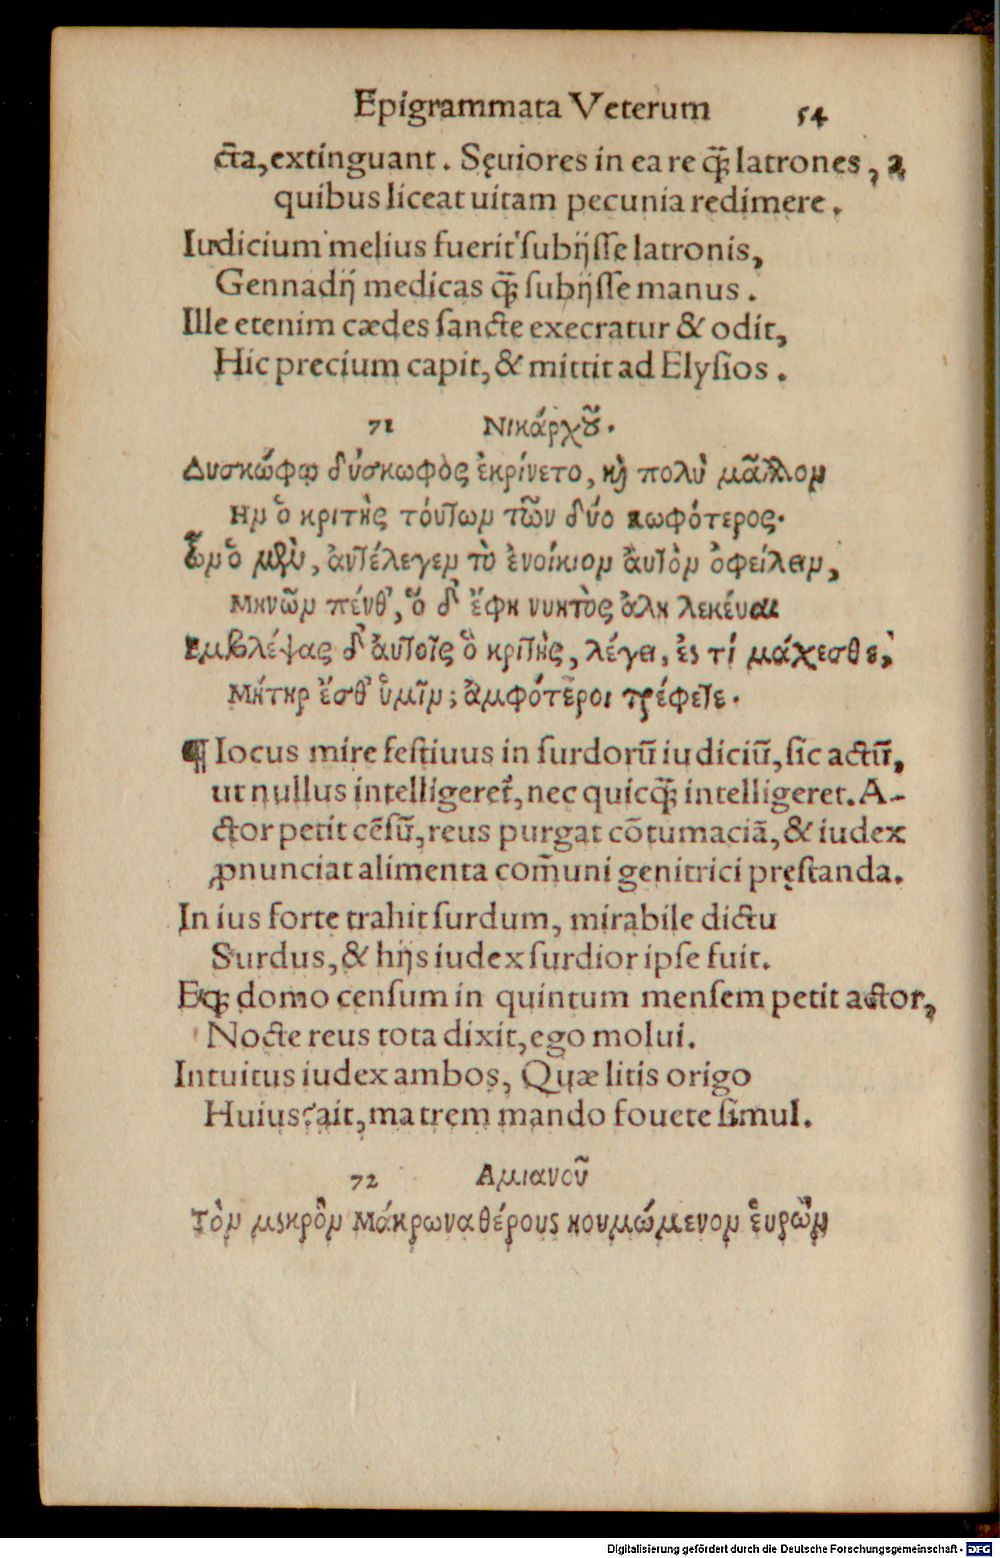 Epigrammata Veterum 54
cta,extinguant. Sęuiores in ea re q̃ʒ latrones, a
quibus liceat uitam pecunia redimere.
Iudicium melius fuerit subijsse latronis,
Gennadij medicas q̃ʒ subijsse manus.
Ille etenim cædes sancte execratur & odit,
Hic precium capit, & mittit ad Elysios.
71 Νικάρχου.
Δυσκώφῳ δύσκωφὸς ἐκρίνετο, καὶ πολὺ μᾶλλον
Ην ὁ κριτὴς τόυτων τῶν δύο κωφότερος.
Ὧν ὁ μὲν, ἀντέλεγεν τὸ ἐνοίκιον ἀυτὸν ὀφείλειν,
Μηνῶν πένθ', ὅ δ' ἔφη νυκτὸς ἀληλεκέναι
Εμβλέψας δ' ἀυτοῖς ὁ κριτὴς, λέγει, ἐς τί μάχεσθε,
Μήτηρ ἔσθ' ὑμῖν; ἀμφότεροι τρέφετε.
¶ Iocus mire festiuus in surdorũ iudiciũ, sic actũ,
ut nullus intelligeret, nec quicq̃ʒ intelligeret. A-
ctor petit cẽsũ, reus purgat cõtumaciã, & iudex
ꝓnunciat alimenta com̃uni genitrici pręstanda.
In ius forte trahit surdum, mirabile dictu
Surdus, & hijs iudex surdior ipse fuit.
Eqʒ domo censum in quintum mensem petit actor,
Nocte reus tota dixit, ego molui.
Intuitus iudex ambos, Quæ litis origo
Huius? ait, matrem mando fouete simul.
72 Αμιανοῦ
Τὸν μικρὸν Μάκρωνα θέρους κουμώμενον ἑυρὼν
Digitalisierung gefördert durch die Deutsche Forschungsgemeinschaft - DFG